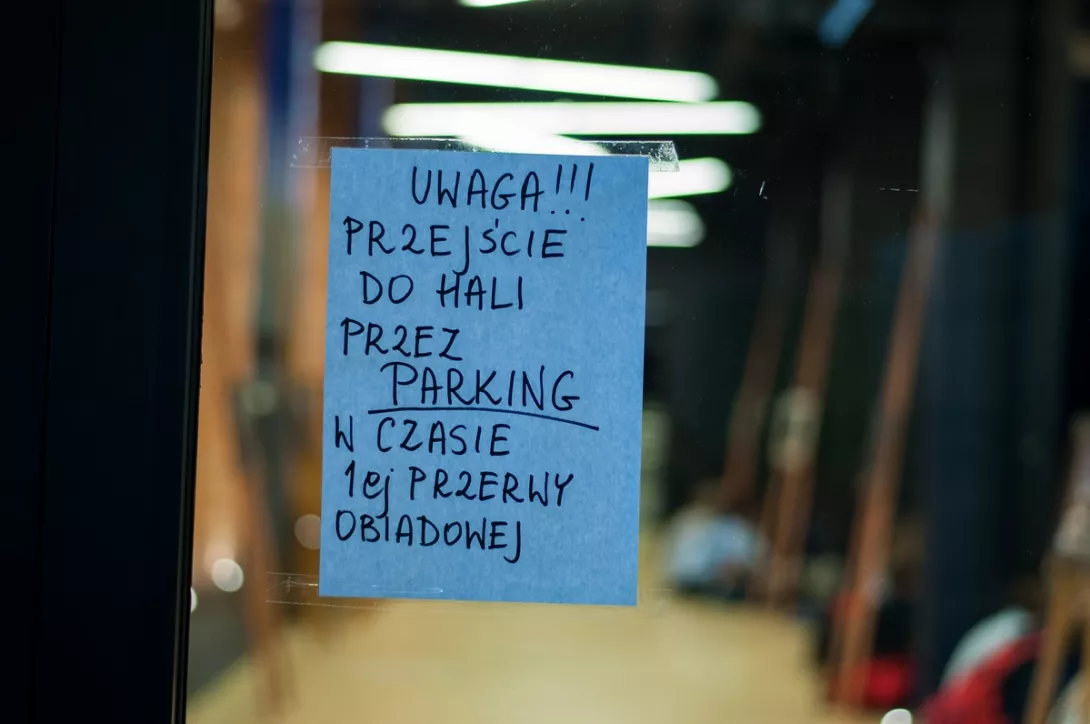 UWAGA!!!
PRZEJŚCIE
DO HALI
PRZEZ
PARKING
W CZASIE
1ej PRZERWY
OBIADOWEJ